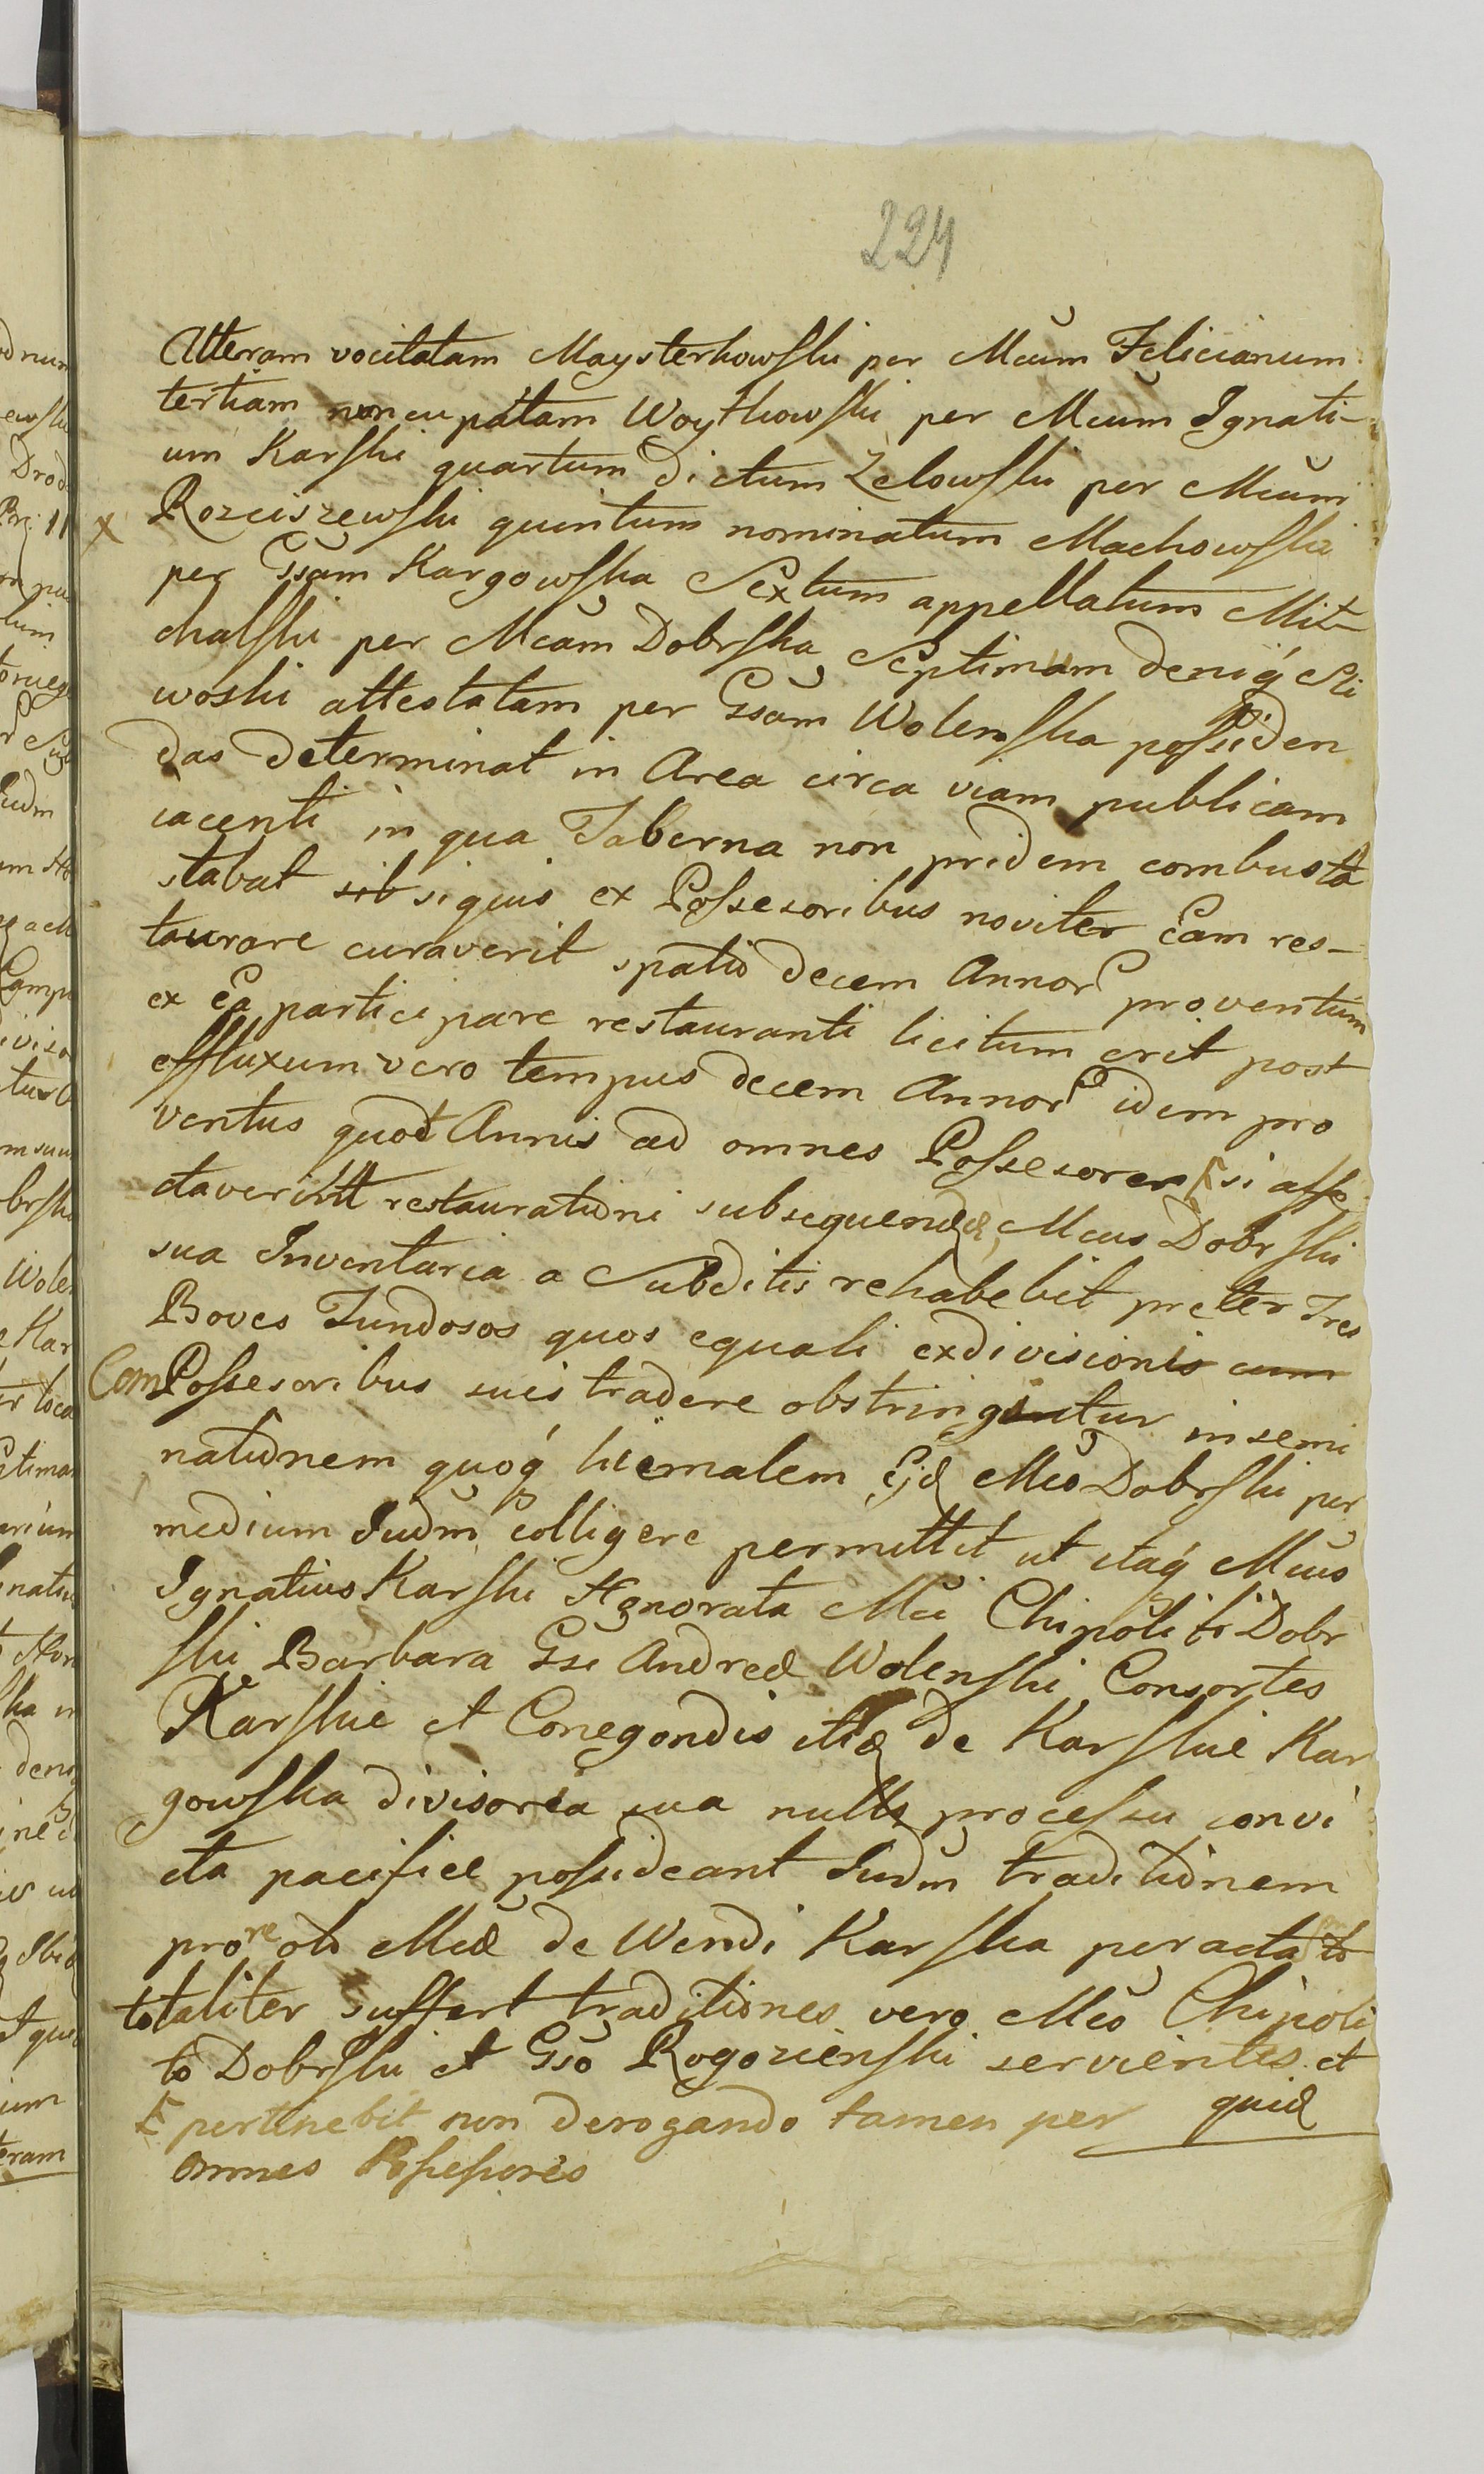 224
Alteram vocitatam Maysterkowski per Mcum Felicianum
tertiam nuncupatam Woytkowski per Mcum Ignati-
um Karski quartum dictum Zelowski per Mcum
x Rozciszewski quintum nominatum Machowski
per Gsam Kargowska Sextum appellatum Mit-
chalski per Mcam Dobrska Septimam deniq Sli
woski attestatam per Gsam Wolenska possiden
das determinat in Area circa viam publicam
iacenti in qua Taberna non pridem combusta
stabat sib siquis ex Possesoribus noviter Eam res-
taurare curaverit spatio decem Annor proventum
ex Ea participare restauranti licitum erit post
effluxum vero tempus decem Annor idem pro
ventus quot Annis ad omnes Possesores si affe
ctaverint restaurationi subsequendæ, Mcus Dobrski
sua Inventaria a Subditis rehabebit preter Tres
Boves Fundosos quos equali exdivisionis cum
Com Possesoribus suis tradere obstringitur insemi
nationem quoq hiemalem Gd Mco Dobrski per
medium Iudm colligere permittit ut itaq Mcus
Ignatius Karski Honorata Mci Chipoliti Dobr
ski Barbara Gsi Andreæ Wolenski Consortes
Karskie et Conegondis itid de Karskie Kar
gowska divisoria sua nullo processu convi
cta pacifice possideant Iudm traditionem
prore olo Mcæ de Wendi Karska peracta to
totaliter suffert traditiones vero Mco Chipoli
to Dobrski et Gso Rogozienski servientes et
quid
pertinebit non derogando tamen per
omnes Possessores